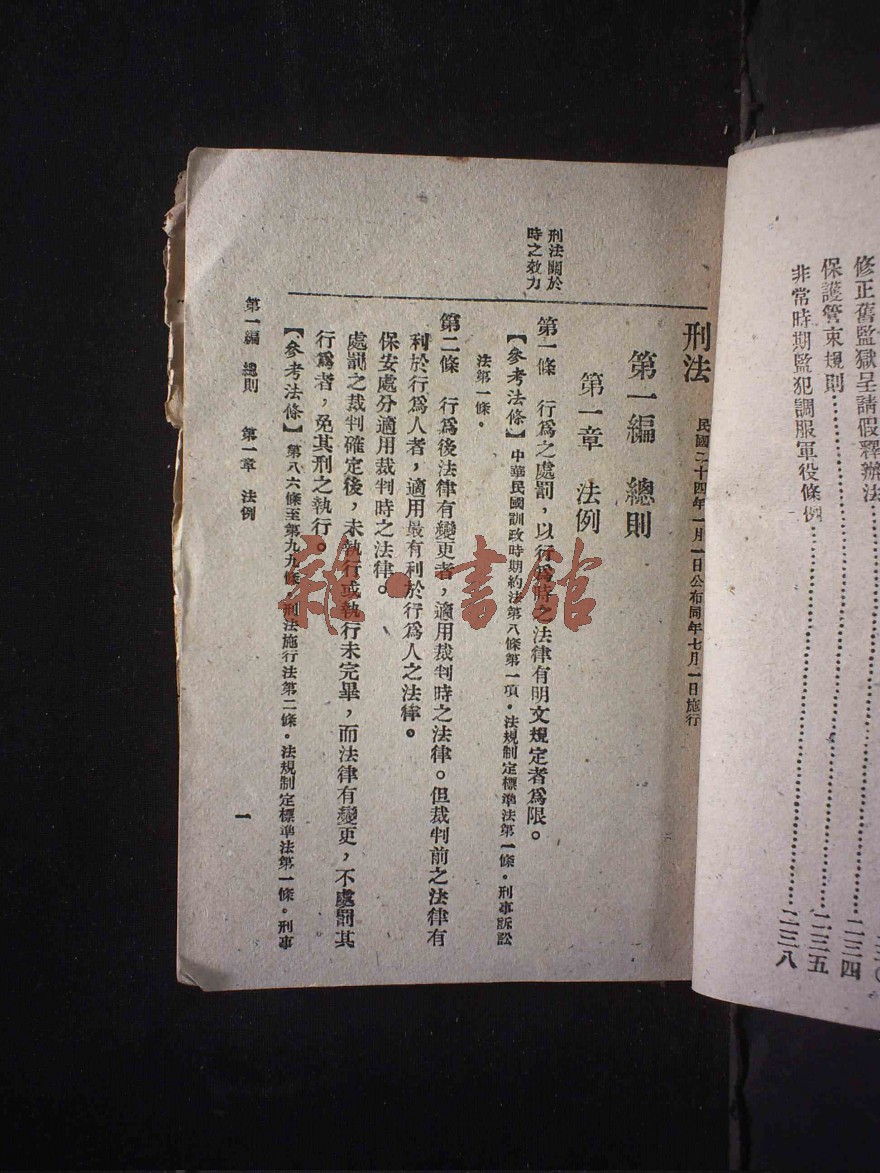 修正舊監獄呈請假釋辦法……………二三四
保護管束規則……………二三五
非常時期監犯調服軍役條例……………二三八
刑法 民國二十四年一月一日公布同年七月一日施行
第一編 總則
第一章 法例
刑法關於
時之效力
第一條 行爲之處罰，以行爲時之法律有明文規定者爲限。
【參考法條】中華民國訓政時期約法第八條第一項。法規制定標準法第一條。刑事訴訟
法第一條。
第二條 行爲後法律有變更者，適用裁判時之法律。但裁判前之法律有
利於行爲人者，適用最有利於行爲人之法律。
保安處分適用裁判時之法律。
處罰之裁判確定後，未執行或執行未完畢，而法律有變更，不處罰其
行爲者，免其刑之執行。
【參考法條】第八六條至第九九條。刑法施行法第二條。法規制定標準法第一條。刑事
第一編 總則 第一章 法例
一
雜·書館